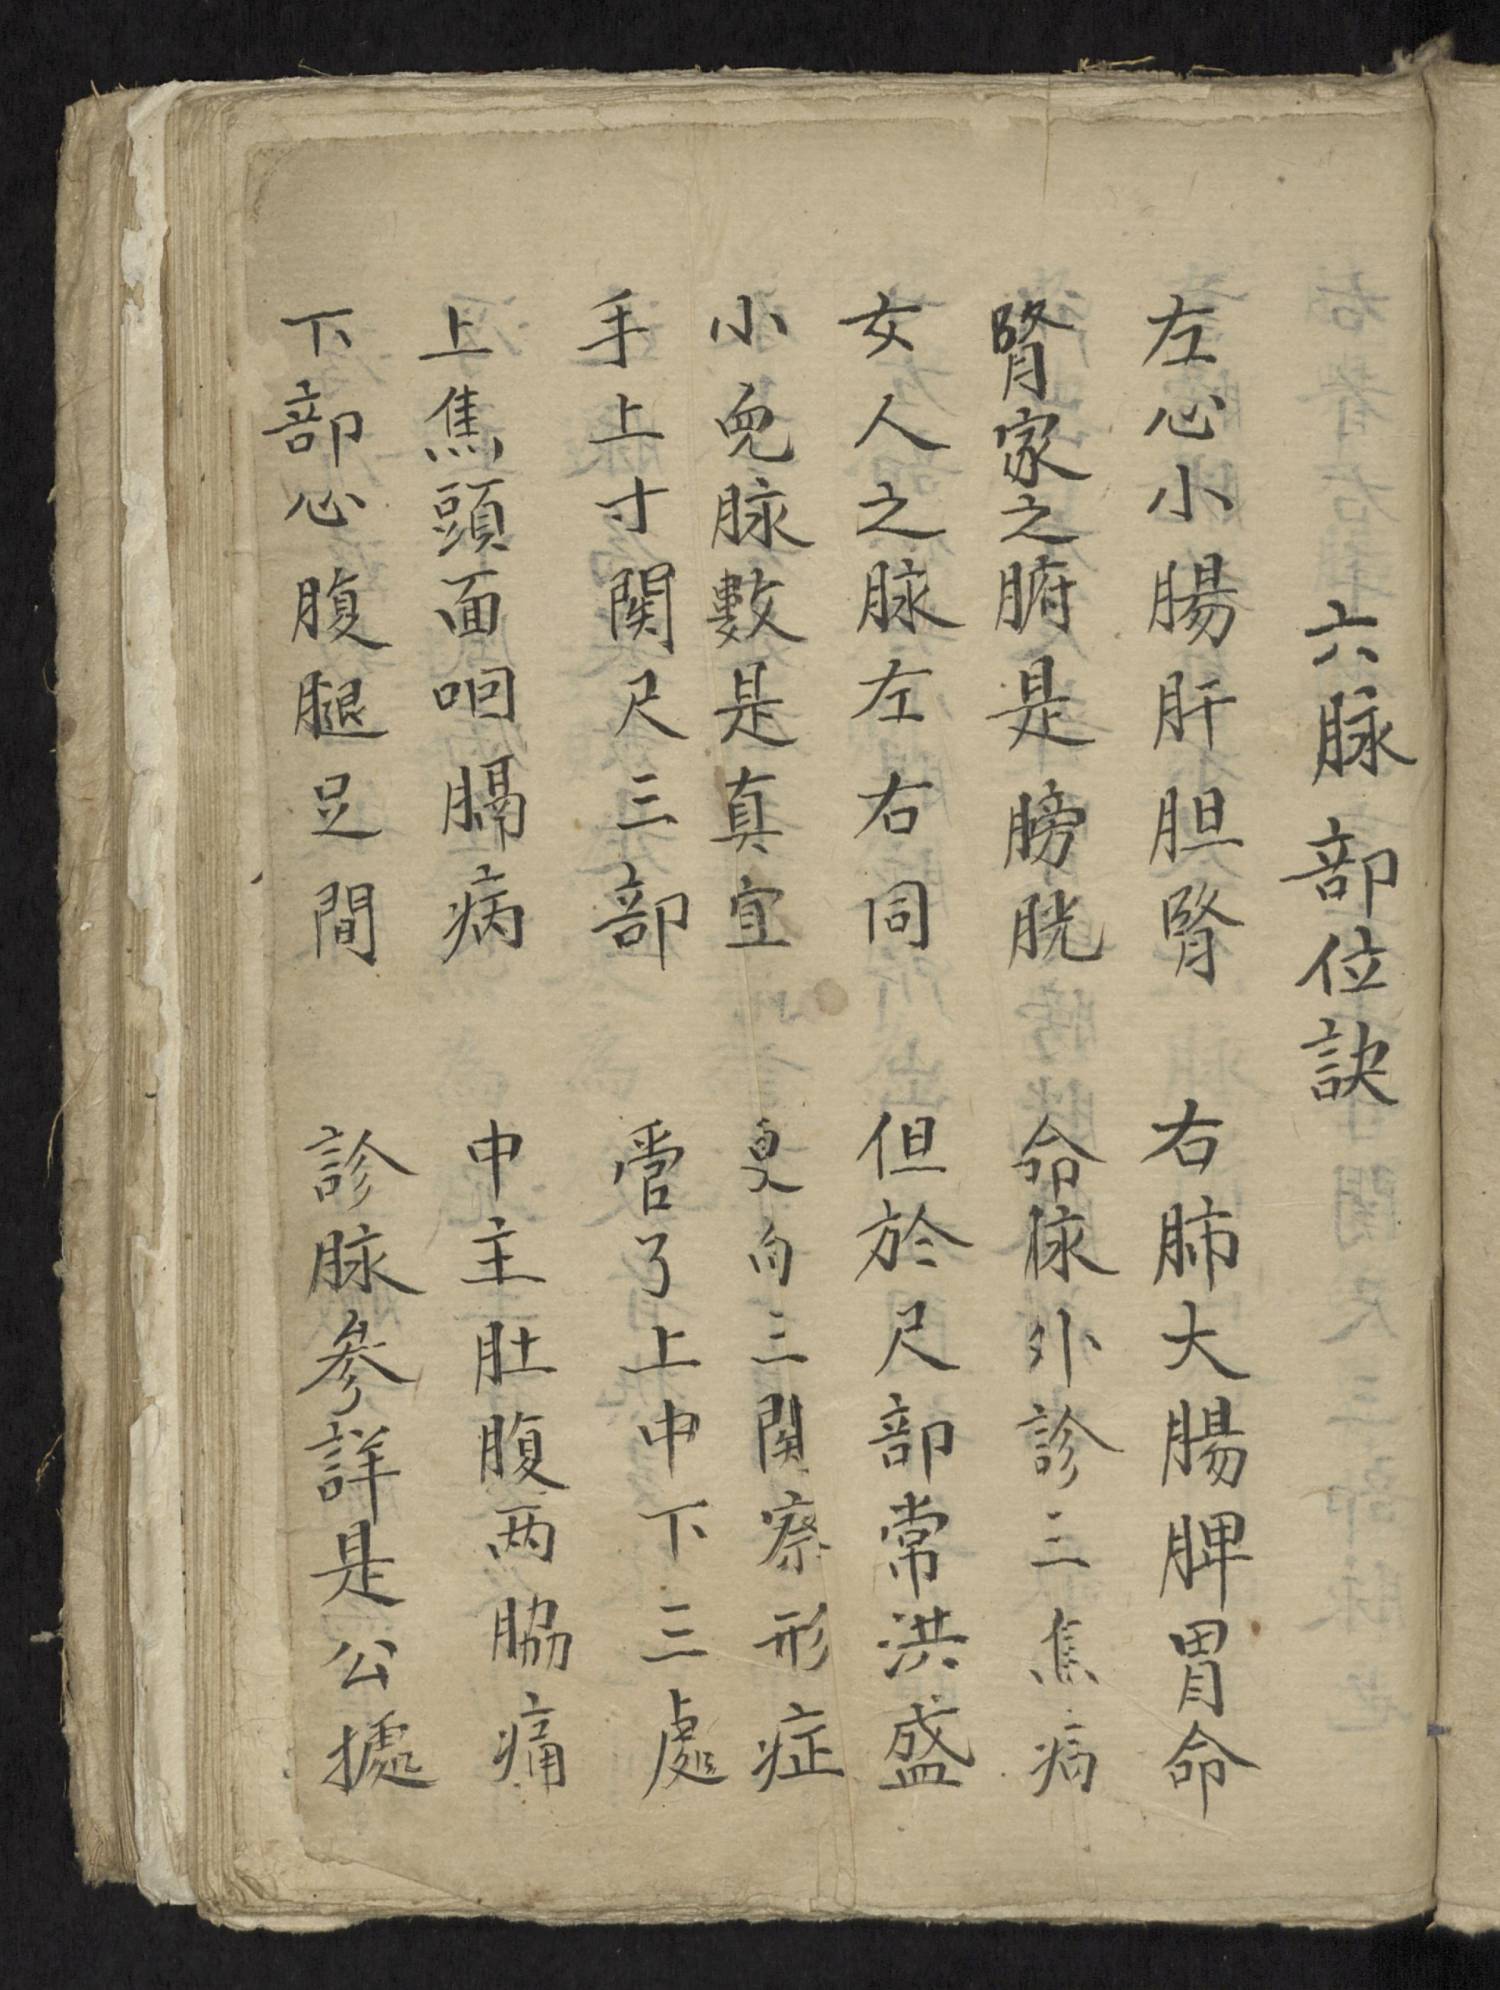 六脉部位訣
左心小腸肝胆腎　右肺大腸脾胃命
腎家之腑是膀胱　命脉外診三焦病
女人之脉左右同　但於尺部常洪盛
小兒脉數是真宜　更向三関察形症
手上寸関尺三部　管了上中下三處
上焦頭面咽膈病　中主肚腹两脇痛
下部心腹腿足間　診脉參詳是公㨿